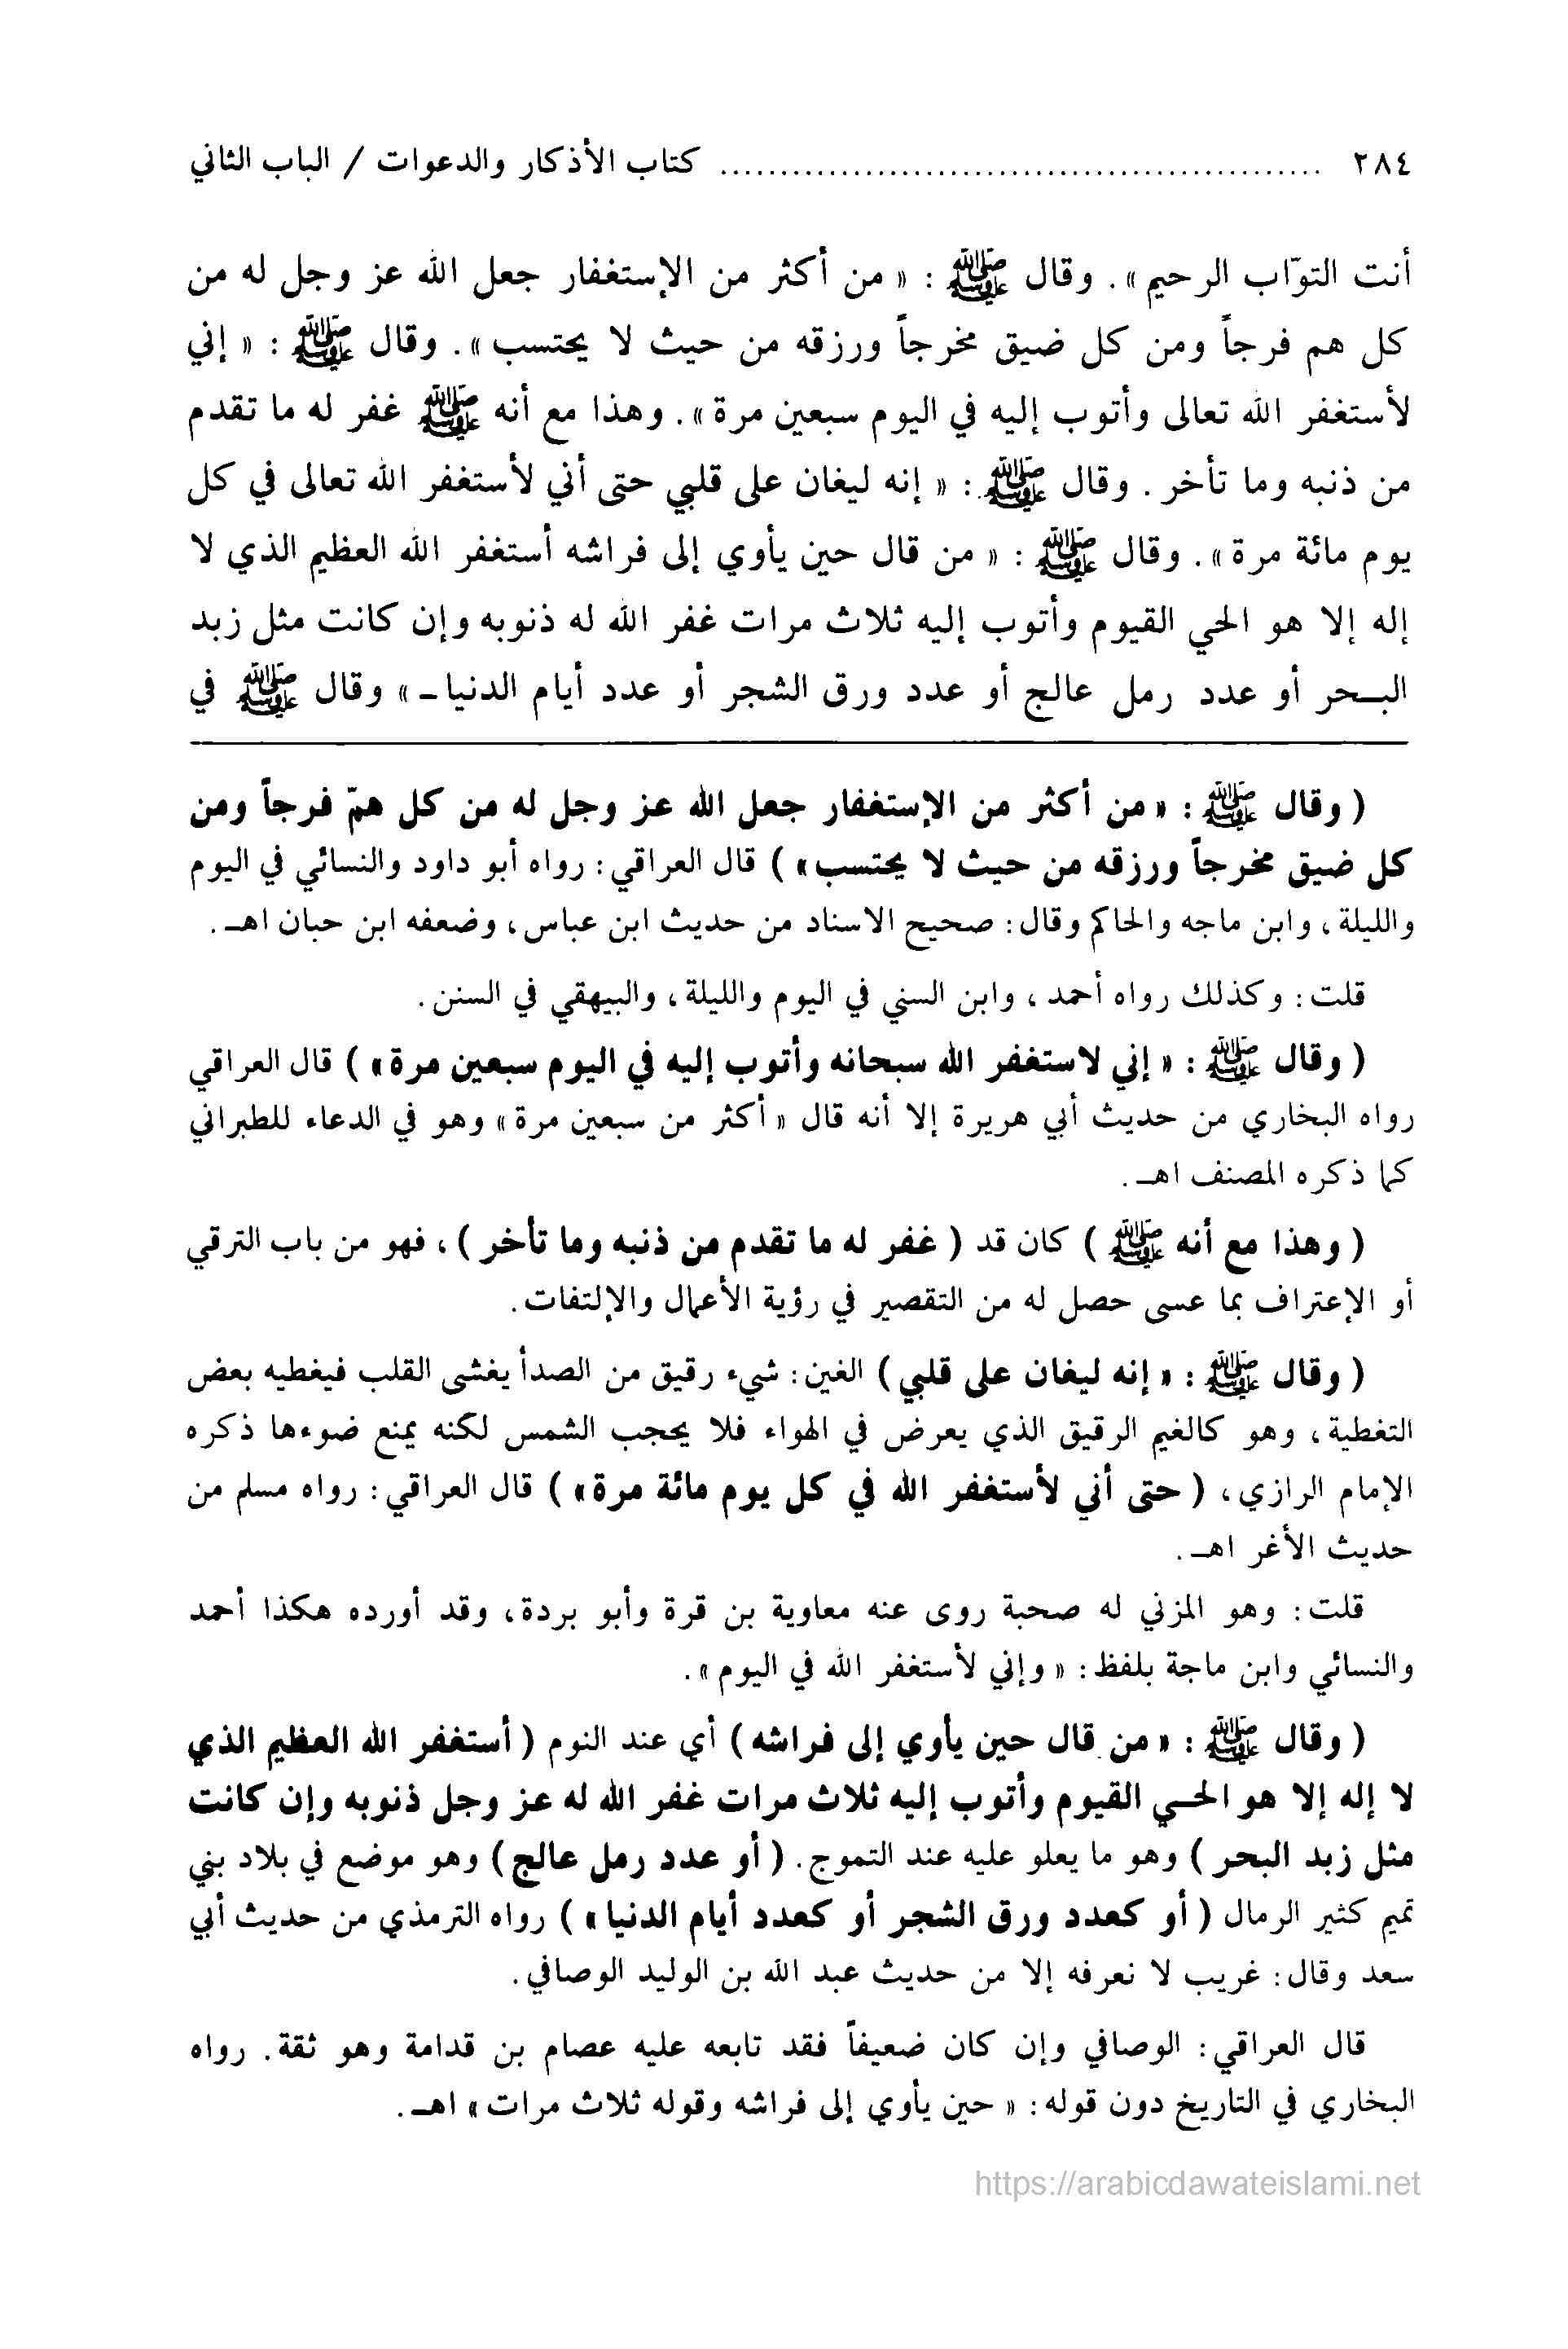 ٢٨٤ ........................................................ كتاب الأذكار والدعوات / الباب الثاني
أنت التوّاب الرحيم ». وقال ﷺ : « من أكثر من الإستغفار جعل الله عز وجل له من
كل هم فرجاً ومن كل ضيق مخرجاً ورزقه من حيث لا يحتسب ». وقال ﷺ : « إني
لأستغفر الله تعالى وأتوب إليه في اليوم سبعين مرة ». وهذا مع أنه ﷺ غفر له ما تقدم
من ذنبه وما تأخر . وقال ﷺ : « إنه ليغان على قلبي حتى أني لأستغفر الله تعالى في كل
يوم مائة مرة ». وقال ﷺ : « من قال حين يأوي إلى فراشه أستغفر الله العظيم الذي لا
إله إلا هو الحي القيوم وأتوب إليه ثلاث مرات غفر الله له ذنوبه وإن كانت مثل زبد
البـحر أو عدد رمل عالج أو عدد ورق الشجر أو عدد أيام الدنيا ـ » وقال ﷺ في
( وقال ﷺ : « من أكثر من الإستغفار جعل الله عز وجل له من كل همّ فرجاً ومن
كل ضيق مخرجاً ورزقه من حيث لا يحتسب » ) قال العراقي : رواه أبو داود والنسائي في اليوم
والليلة ، وابن ماجه والحاكم وقال : صحيح الاسناد من حديث ابن عباس ، وضعفه ابن حبان اهـ .
قلت : وكذلك رواه أحمد ، وابن السني في اليوم والليلة ، والبيهقي في السنن .
( وقال ﷺ : « إني لاستغفر الله سبحانه وأتوب إليه في اليوم سبعين مرة » ) قال العراقي
رواه البخاري من حديث أبي هريرة إلا أنه قال « أكثر من سبعين مرة » وهو في الدعاء للطبراني
كما ذكره المصنف اهـ .
( وهذا مع أنه ﷺ ) كان قد ( غفر له ما تقدم من ذنبه وما تأخر ) ، فهو من باب الترقي
أو الإعتراف بما عسى حصل له من التقصير في رؤية الأعمال والإلتفات .
( وقال ﷺ : « إنه ليغان على قلبي ) الغين : شيء رقيق من الصدأ يغشى القلب فيغطيه بعض
التغطية ، وهو كالغيم الرقيق الذي يعرض في الهواء فلا يحجب الشمس لكنه يمنع ضوءها ذكره
الإمام الرازي ، ( حتى أني لأستغفر الله في كل يوم مائة مرة » ) قال العراقي : رواه مسلم من
حديث الأغر اهـ .
قلت : وهو المزني له صحبة روى عنه معاوية بن قرة وأبو بردة ، وقد أورده هكذا أحمد
والنسائي وابن ماجة بلفظ : « وإني لأستغفر الله في اليوم » .
( وقال ﷺ : « من قال حين يأوي إلى فراشه ) أي عند النوم ( أستغفر الله العظيم الذي
لا إله إلا هو الحـي القيوم وأتوب إليه ثلاث مرات غفر الله له عز وجل ذنوبه وإن كانت
مثل زبد البحر ) وهو ما يعلو عليه عند التموج . ( أو عدد رمل عالج ) وهو موضع في بلاد بني
تميم كثير الرمال ( أو كعدد ورق الشجر أو كعدد أيام الدنيا » ) رواه الترمذي من حديث أبي
سعد وقال : غريب لا نعرفه إلا من حديث عبد الله بن الوليد الوصافي .
قال العراقي : الوصافي وإن كان ضعيفاً فقد تابعه عليه عصام بن قدامة وهو ثقة . رواه
البخاري في التاريخ دون قوله : « حين يأوي إلى فراشه وقوله ثلاث مرات » اهـ .
https://arabicdawateislami.net